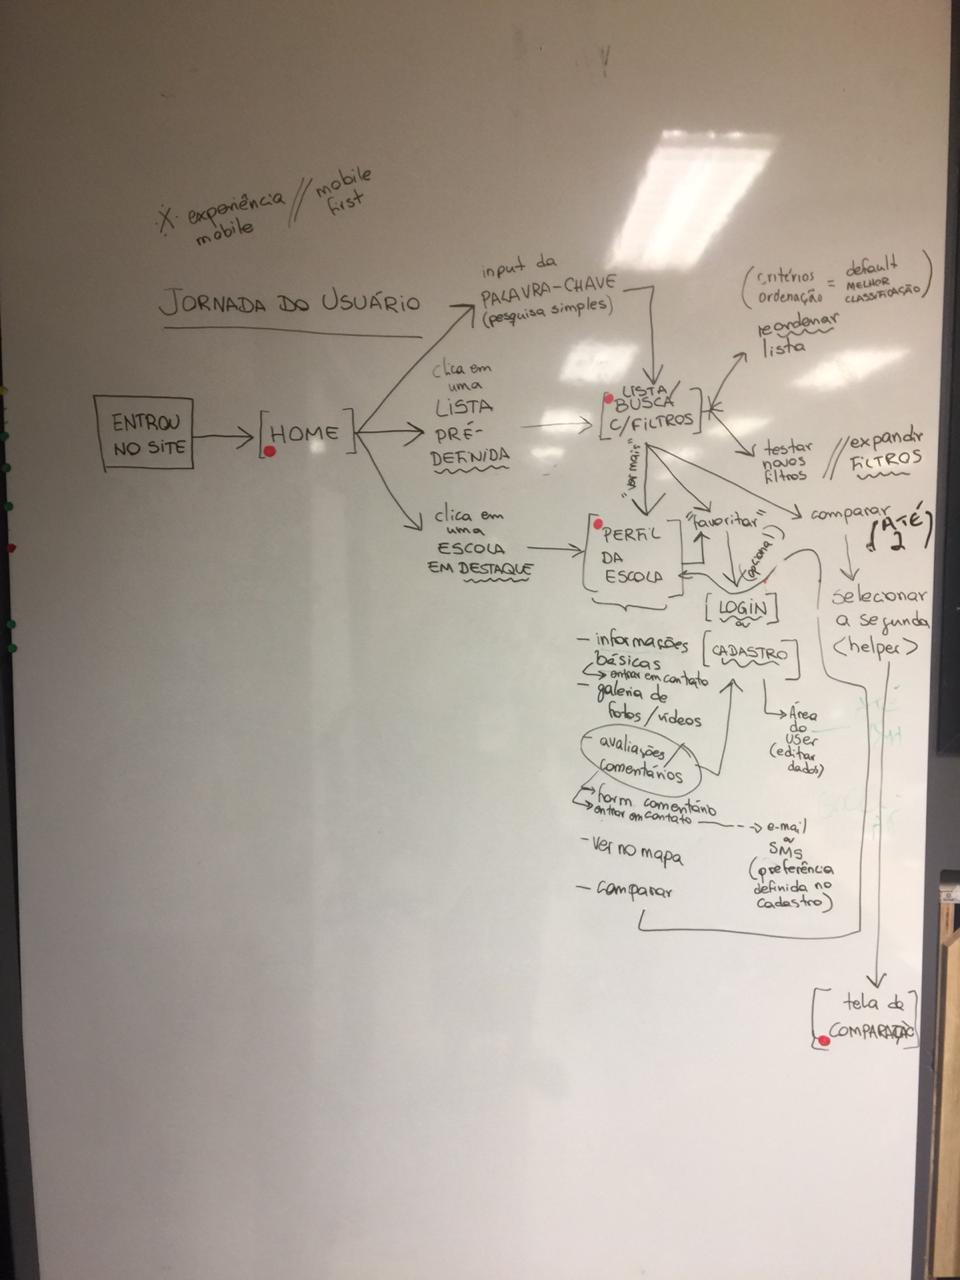 experiência // mobile
mobile first
JORNADA DO USUÁRIO
ENTROU
NO SITE
HOME
input da
PALAVRA-CHAVE
(pesquisa simples)
clica em
uma
LISTA
PRÉ-
DEFINIDA
clica em
uma
ESCOLA
EM DESTAQUE
LISTA/
BUSCA
C/FILTROS
(critérios = default
ordenação MELHOR
CLASSIFICAÇÃO)
reordenar
lista
testar
novos
filtros
// expandir
FILTROS
"ver mais"
"favoritar"
(opcional)
comparar
(ATÉ
2)
selecionar
a segunda
<helper>
PERFIL
DA
ESCOLA
LOGIN
ou
CADASTRO
Área
do
USER
(editar
dados)
- informações
básicas
entrar em contato
- galeria de
fotos/vídeos
- avaliações/
comentários
form comentário
entrar em contato
e-mail
ou
SMS
(preferência
definida no
cadastro)
- ver no mapa
- comparar
tela de
COMPARAÇÃO